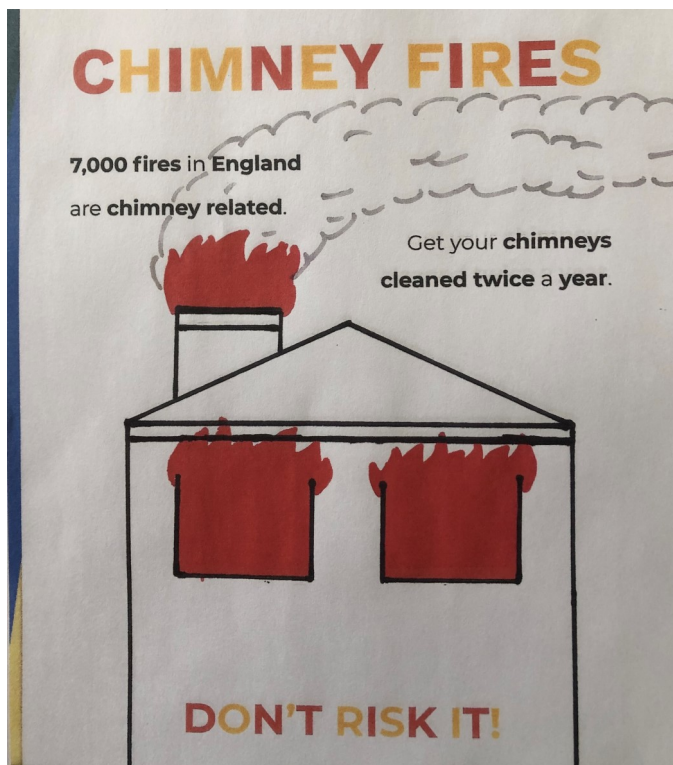 CHIMNEY FIRES
7,000 fires in England
are chimney related.
Get your chimneys
cleaned twice a year.
DON'T RISK IT!